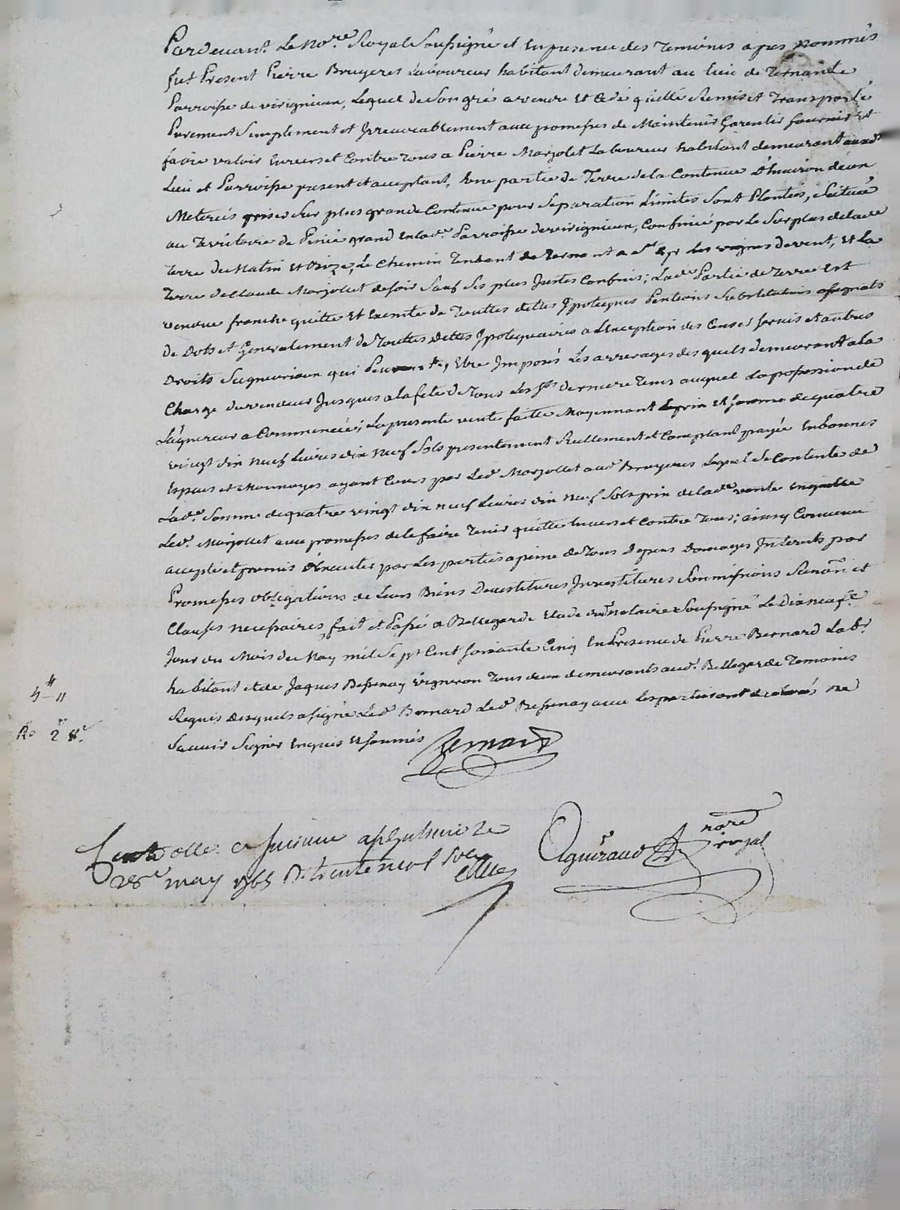 Pardevant Le No.re Royal Soussigné et En presence des Temoins apres nommés
fut Present Pierre Bruyeres Laboureur habitant demeurant au lieu de
Parroisse de virignieux, Lequel de Son gré a vendu Et Cedé quitté Remis et Transporté
Purement Simplement et Irrevocablement avec promesses de Maintenir Garentir fournir Et
faire valoir Envers et Contre Tous a Pierre Marjolet Laboureur habitant demeurant aud.
Lieu et Parroisse present et acceptant, Une partie de Terre de la Contenue D'Environ deux
Meterés prises Sur plus grande Contenue pour Separation Limites Sont Plantées, Scituée
au Territoire de grand En lad.e Parroisse de virignieux, Confinée par le Surplus de lad.e
Terre de Matin Et Bize, Le Chemin Tendant de a de vent, Et La
Terre de Claude Marjollet de Soir Sauf Ses plus Justes Confins; Lad.e Partie de Terre Est
vendue franche quitte Et Exempte de Touttes dettes Ipoteques Pentions Substitutions
de Dots et Generalement de Touttes dettes Ipotequaires a L'exception des Cens et Servis Et autres
Droits Seigneuriaux qui Peuvent y Etre Imposés Les arrerages des quels demeurant a la
Charge du vendeur Jusques a la fete de Tous Les S.ts derniere Tems auquel La possession de
L'aquereur a Commencée; La presente vente faitte Moyennant Le prix Et Somme de quatre
vingt dix neuf Livres dix neuf Sols presentement Reellement et Comptant payée En bonnes
Especes et Monnoyes ayant Cours par Led. Marjollet aud. Bruyeres Lequel Se Contente de
Lad.e Somme de quatre vingt dix neuf Livres dix neuf Sols prix de lad.e vente En quitte
Led. Marjollet avec promesses de le faire Tenir quitte Envers et Contre Tous; ainsy Convenu
accepté et promis Executer par Les parties a peine de Tous Depens Domages Interets par
Promesses obligations de Leurs Biens Devestitures Investitures Soumissions Renon.on et
Clauses necessaires, fait et Passé a Bellegarde Etude du Notaire Soussigné Le dix neuf.e
Jour du Mois de May mil Sept Cent Soixante Cinq En Presence de Pierre Bernard Lab.r
habitant et de Jaques Bessenay vigneron Tous deux demeurants aud. Bellegarde Temoins
Requis desquels a Signé Led. Bernard Led. Bessenay avec Les parties ont declarés ne
Savoir Signer Enquis Et Sommés Bernard
4 # 11
Ro 2 8.e
Controllé et Insinué
28.e may 1765 R. trente neuf Sols
Aguiraud no.re royal